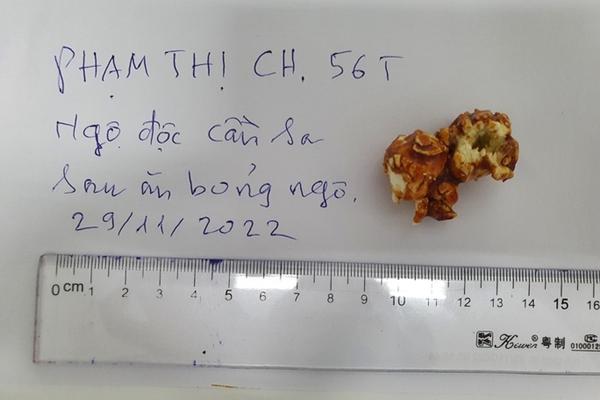 PHẠM THỊ CH. 56T
Ngộ độc cần sa
sau ăn bỏng ngô.
29/11/2022
0 cm 1 2 3 4 5 6 7 8 9 10 11 12 13 14 15 16
Kiwen® 粤制